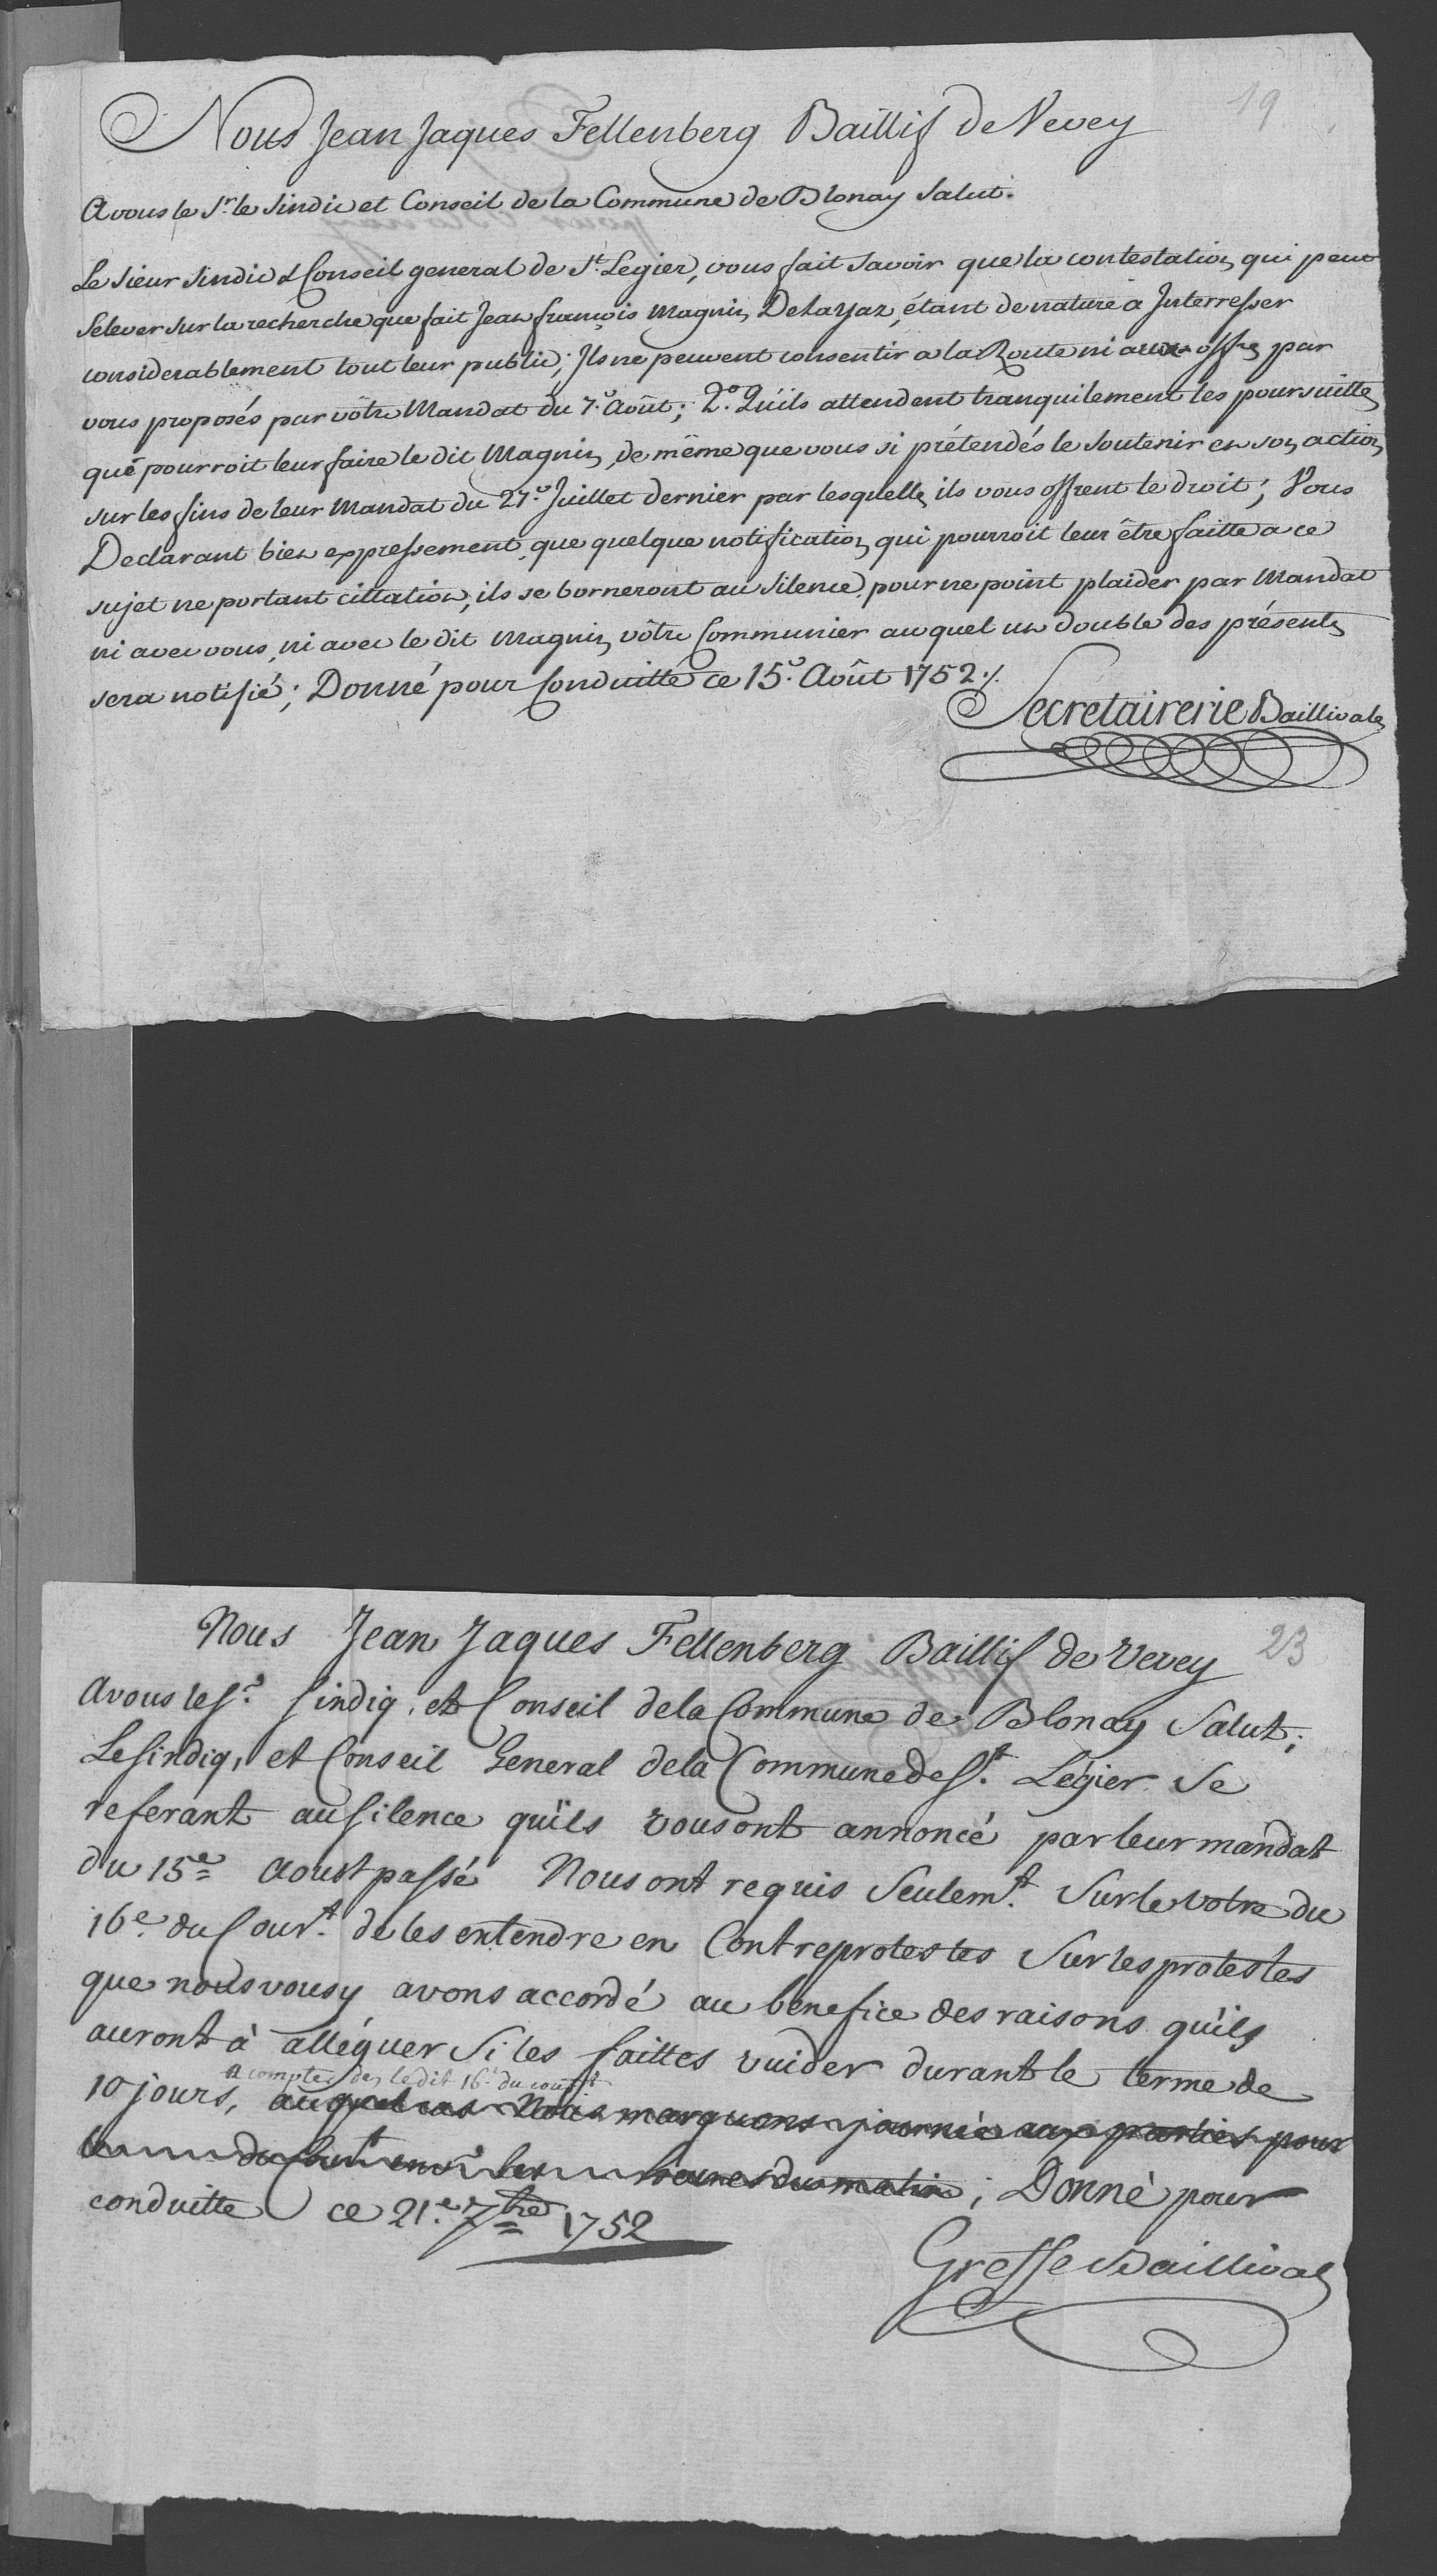 19
Nous Jean Jaques Fellenberg Baillif de Vevey
A vous le Sr. le Sindic et Conseil de la Commune de Blonay Salut.
Le Sieur Sindic & Conseil general de St. Legier, vous fait savoir que la contestation qui peut
selever sur la recherche que fait Jean françois Magnin Delayaz, étant de nature à Interresser
considerablement tout leur public; Ils ne peuvent consentir a la Route ni aux offres par
vous proposés par vôtre Mandat du 7.e Août; 2.o Qu'ils attendent tranquilement les poursuittes
que pourroit leur faire le dit Magnin, de même que vous si prétendés le soutenir en son action
sur les fins de leur Mandat du 27.e Juillet dernier par lesquelles ils vous offrent le droit; Vous
Declarant bien expressement, que quelque notification qui pourroit leur être faitte a ce
sujet ne portant cittation, ils se borneront au silence, pour ne point plaider par Mandat
ni avec vous, ni avec le dit Magnin vôtre Communier auquel un double des présentes
sera notifié; Donné pour Conduitte ce 15.e Août 1752 ./.
Secretairerie Baillivale
23
Nous Jean Jaques Fellenberg Baillif de Vevey
A vous les Srs. Sindiq, et Conseil de la Commune de Blonay Salut;
Le Sindiq, et Conseil General de la Commune de St. Légier se
referant au silence qu'ils vous ont annoncé par leur mandat
du 15e aoust passé Nous ont requis Seulemt. Sur le votre du
16e. du Court. de les entendre en Contreprotestes Sur les protestes
que nous vous y avons accordé au benefice des raisons qu'ils
auront à alléguer Si les faittes vuider durant le terme de
a compter des le dit 16.e du court.
10 jours, auquel cas Nous marquons journée aux parties pour
le du Court. heures du matin; Donné pour
conduitte ce 21.e 7bre 1752
Greffe Baillival